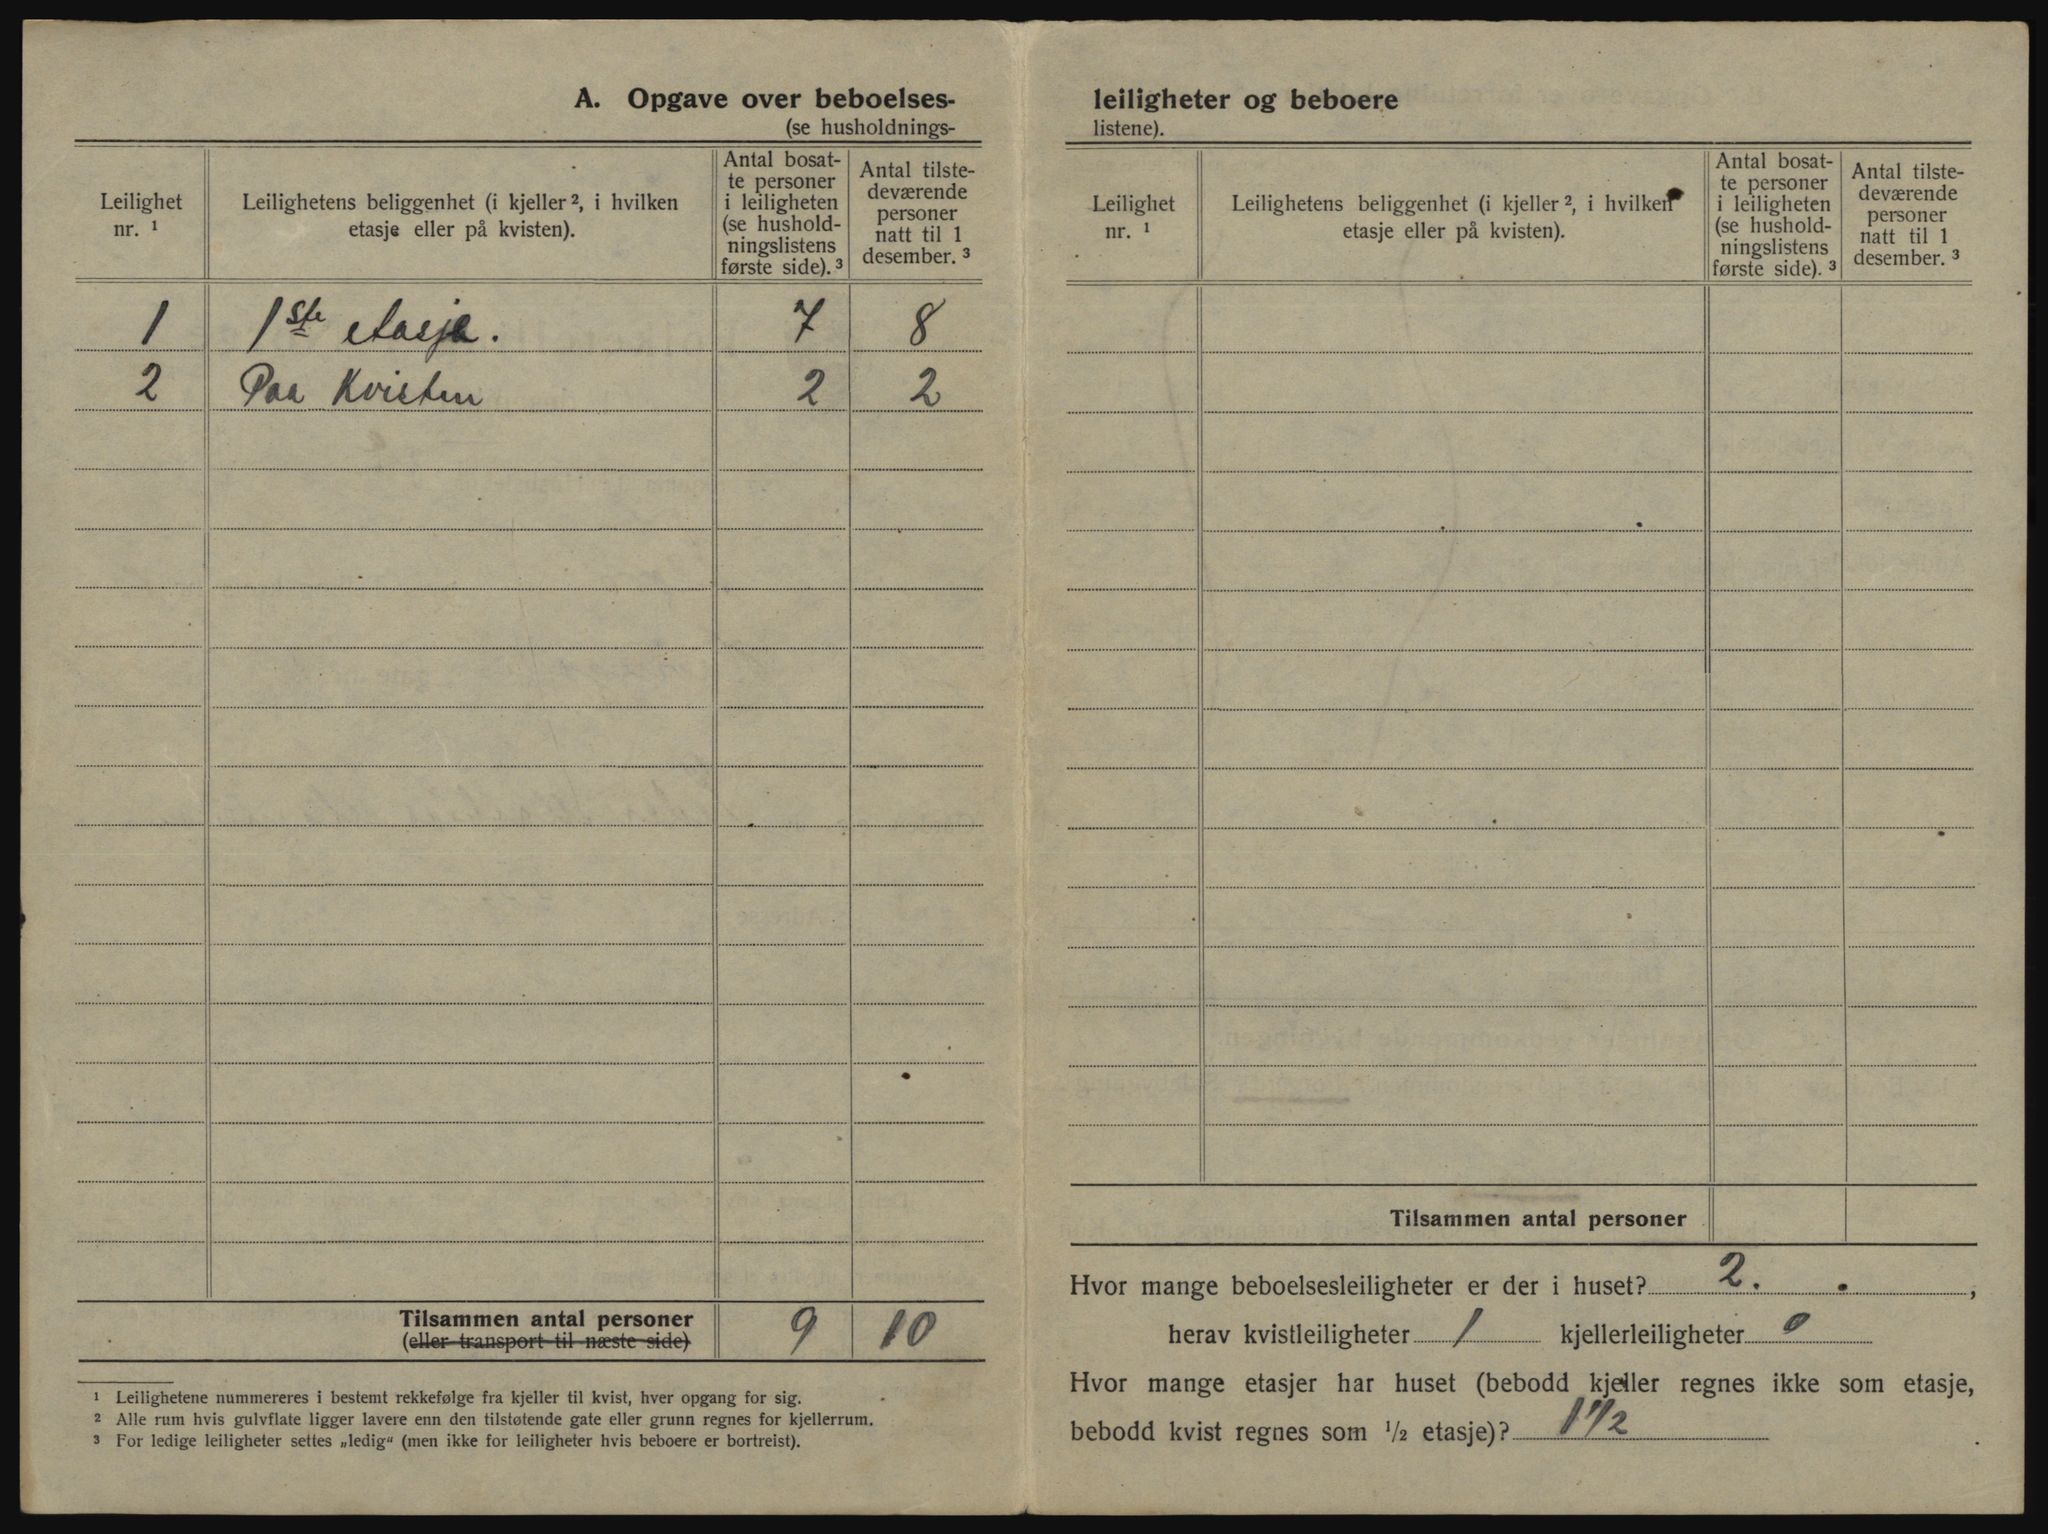 A. Opgave over beboelses-
(se husholdnings-
Leilighet nr. ¹
Leilighetens beliggenhet (i kjeller ², i hvilken
etasje eller på kvisten).
Antal bosat-
te personer
i leiligheten
(se hushold-
ningslistens
første side). ³
Antal tilste-
deværende
personer
natt til 1
desember. ³
1 1ste etasje. 7 8
2 Paa Kvisten 2 2
Tilsammen antal personer 9 10
(eller transport til næste side)
¹ Leilighetene nummereres i bestemt rekkefølge fra kjeller til kvist, hver opgang for sig.
² Alle rum hvis gulvflate ligger lavere enn den tilstøtende gate eller grunn regnes for kjellerrum.
³ For ledige leiligheter settes „ledig“ (men ikke for leiligheter hvis beboere er bortreist).
leiligheter og beboere
listene).
Leilighet
nr. ¹
Leilighetens beliggenhet (i kjeller ², i hvilken
etasje eller på kvisten).
Antal bosat-
te personer
i leiligheten
(se hushold-
ningslistens
første side). ³
Antal tilste-
deværende
personer
natt til 1
desember. ³
Tilsammen antal personer
Hvor mange beboelsesleiligheter er der i huset? 2. ,
herav kvistleiligheter 1 kjellerleiligheter 0
Hvor mange etasjer har huset (bebodd kjeller regnes ikke som etasje,
bebodd kvist regnes som ½ etasje)? 1½